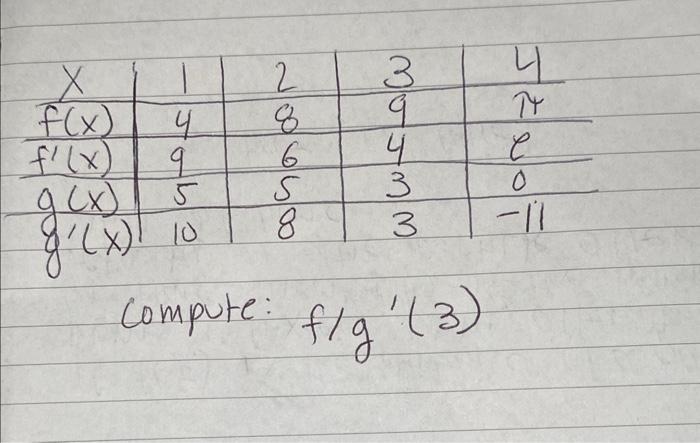 x 1 2 3 4
f(x) 4 8 9 π
f'(x) 9 6 4 e
g(x) 5 5 3 0
g'(x) 10 8 3 -11
compute: f/g'(3)